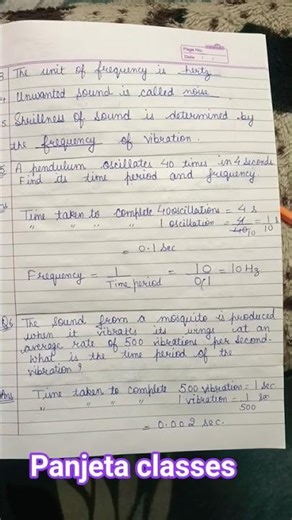 Page No.
Date
3. The unit of frequency is hertz
4. Unwanted sound is called noise
5. Shrillness of sound is determined by
the frequency of vibration.
5. A pendulum oscillates 40 times in 4 seconds
Find its time period and frequency
Time taken to complete 40 oscillations = 4 s
" " " " 1 oscillation = 4/40 10 = 1/10 s
= 0.1 Sec
Frequency = 1/Time period = 10/0.1 = 10 Hz
Q6 The sound from a mosquito is produced
when it vibrates its wings at an
average rate of 500 vibrations per second.
What is the time period of the
vibration?
Ans Time taken to complete 500 vibration = 1 sec
" " " " 1 vibration = 1/500 sec
= 0.002 sec.
Panjeta classes